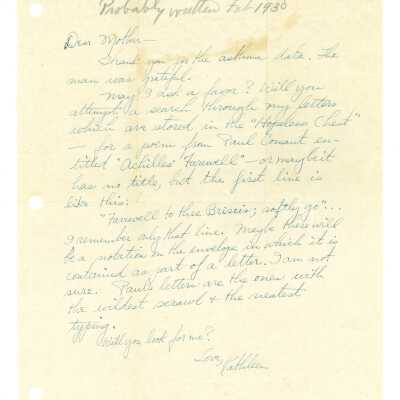 Probably written Feb 1930
Dear Mother—
Thank you for the asthma data. The
man was grateful.
May I ask a favor? Will you
attempt a search through my letters
which are stored in the "Hopeless Chest"
— for a poem from Paul Conant en-
titled "Achilles' Farewell" — or maybe it
has no title, but the first line is
like this:
"Farewell to thee Briseis; softly go"...
I remember only that line. Maybe there will
be a notation on the envelope in which it is
contained as part of a letter. I am not
sure. Paul's letters are the ones with
the wildest scrawl & the neatest
typing.
Will you look for me?
Love,
Kathleen